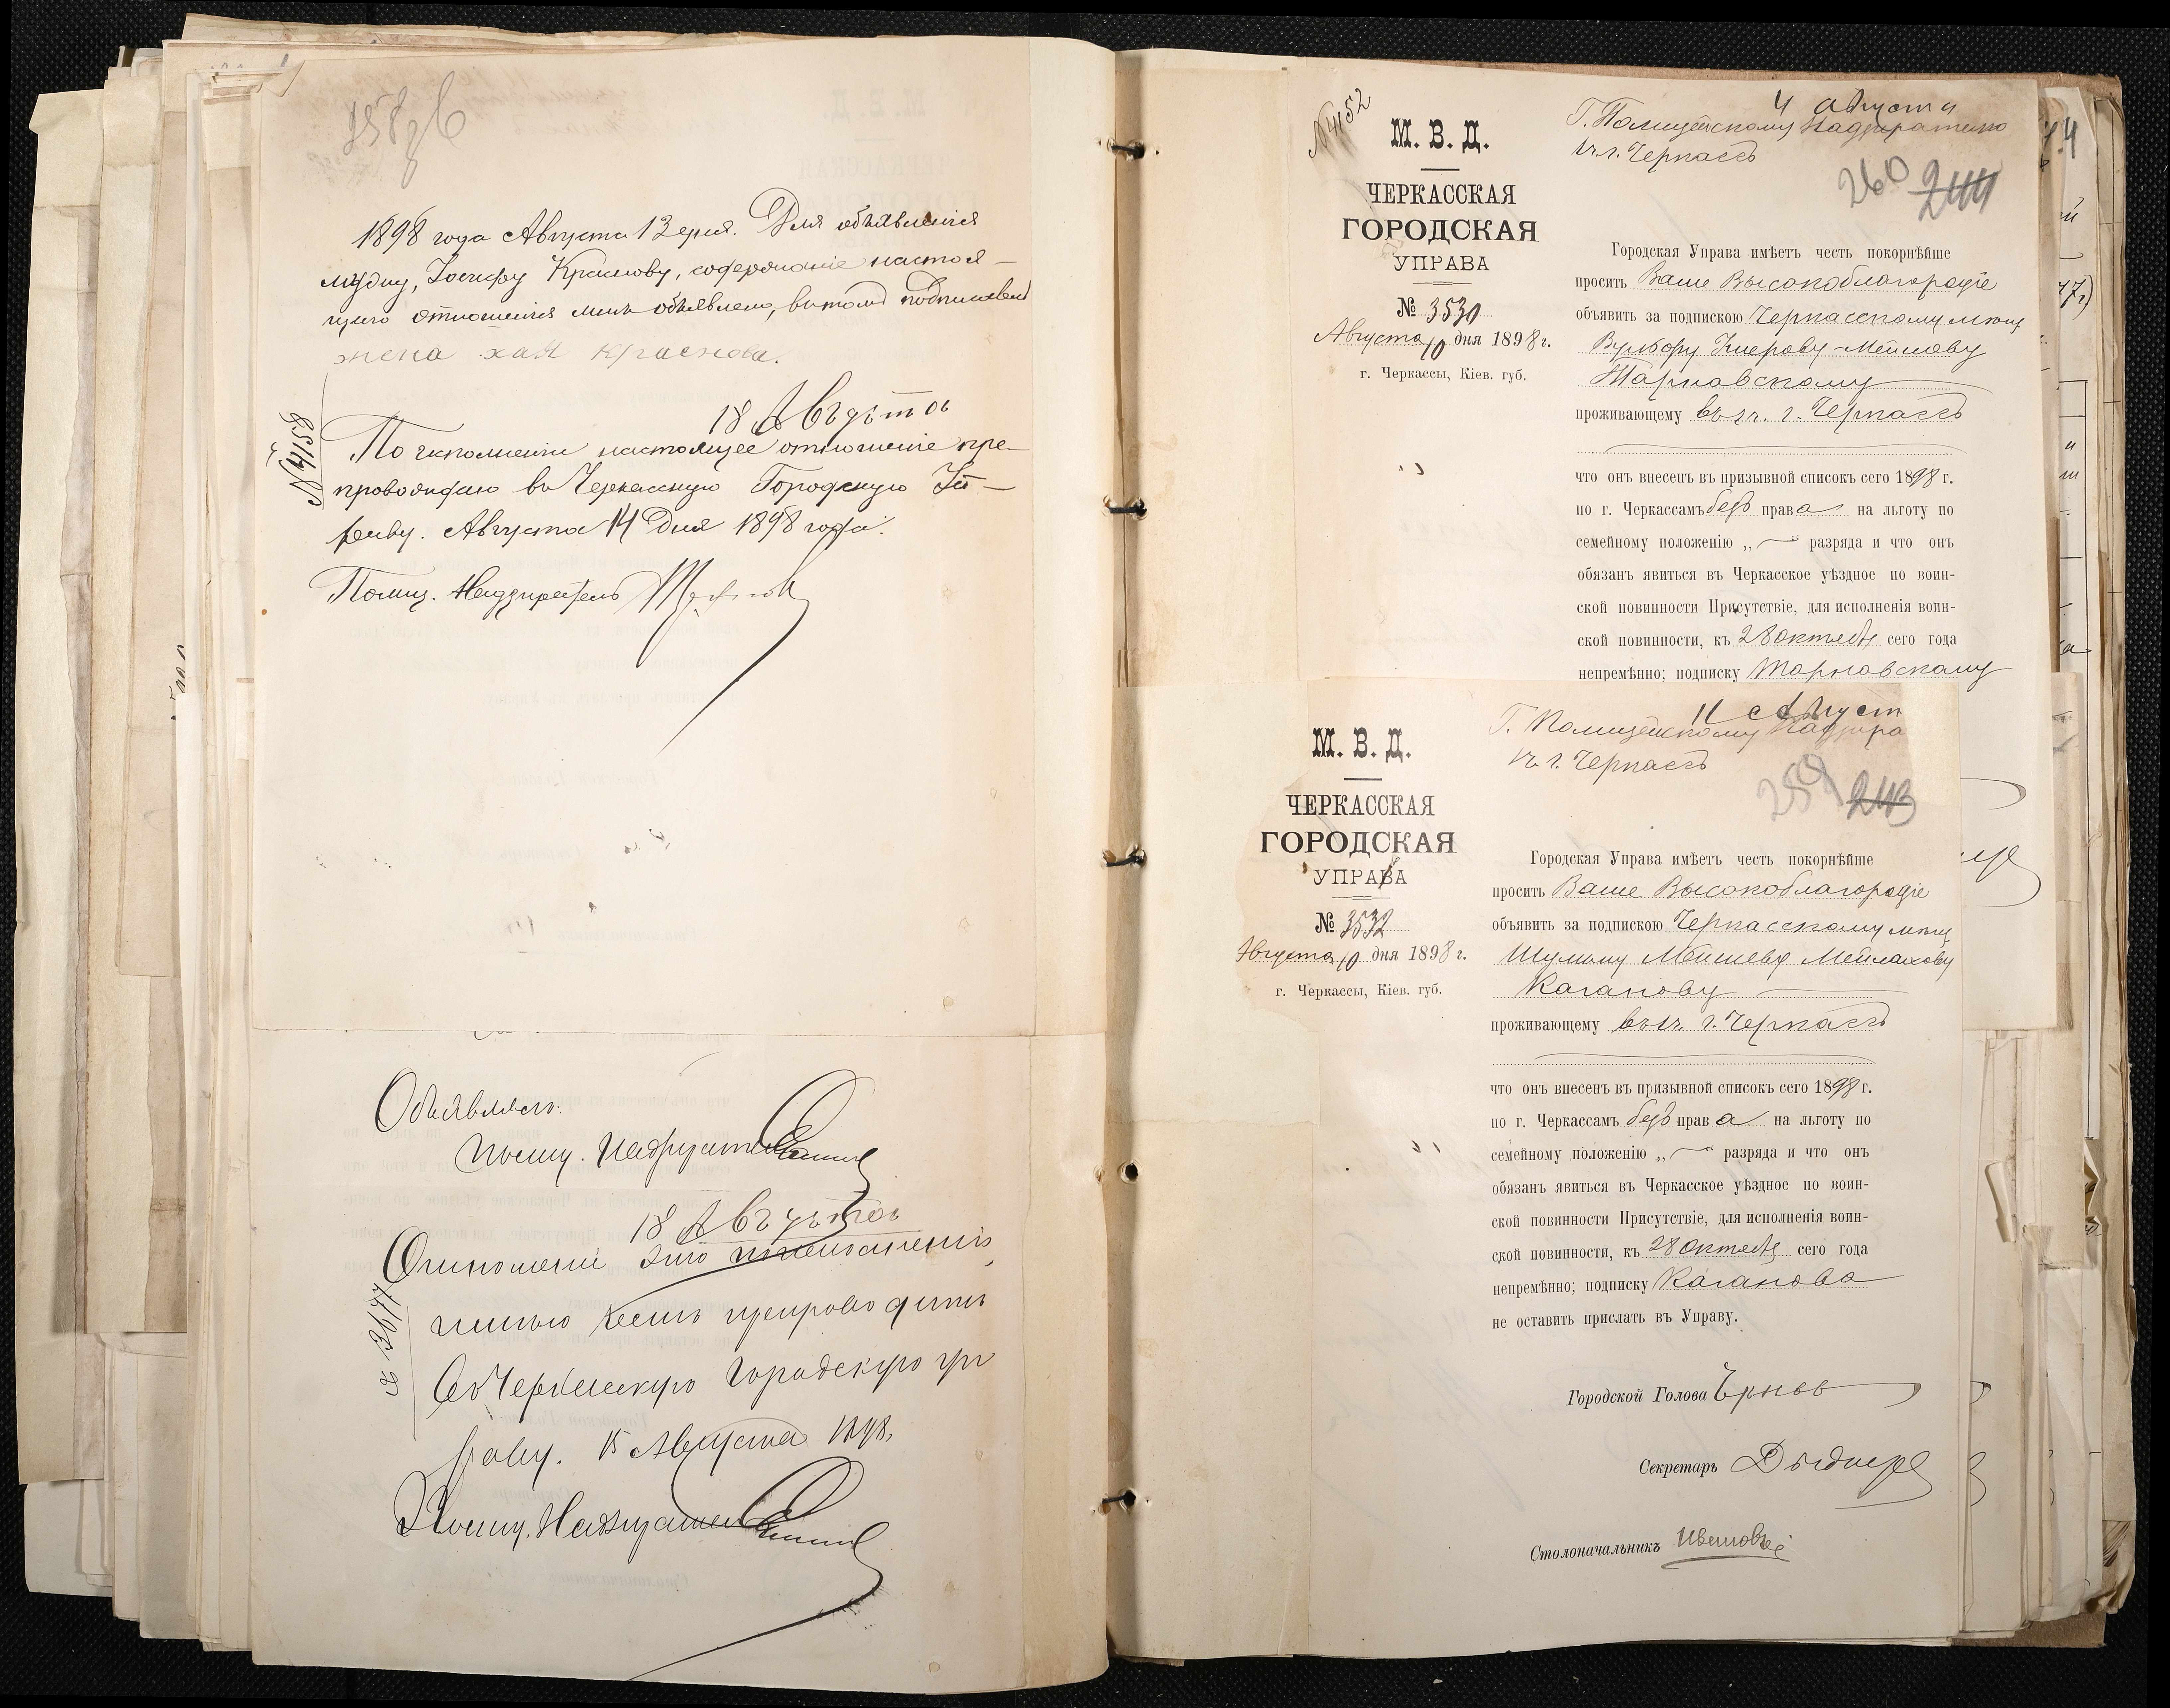 258 об
1898 года Августа 13 дня. Для объявленiя
мужу, Іосифу Краснову, содержанiе настоя-
щаго отношенiя мнѣ объявлено, въ томъ подписовась
жена хая краснова.
18 Августа
№ 4153
По исполненiи настоящее отношенiе пре-
провождаю въ Черкасскую Городскую Уп-
раву. Августа 14 Дня 1898 года.
Полиц. Надзиратель
Объявлялъ.
Полиц. Надзирател
18 Августа
Отношенiе это по исполненiи
имѣю честь препроводить
въ Черкасскую Городскую Уп
раву. 15 Августа 1898.
Полиц. Надзирател
№ 4152
М. В. Д.
ЧЕРКАССКАЯ
ГОРОДСКАЯ
УПРАВА
№ 3530
Августа 10 дня 1898 г.
г. Черкассы, Кiев. губ.
4 Августа
Г. Полицейскому Надзирателю
г. Черкассъ
260 244
Городская Управа имѣетъ честь покорнѣйше
просить Ваше Высокоблагородiе
объявить за подпискою Черкасскому мѣщ
Тарновскому
проживающему въ г. Черкассъ
что онъ внесенъ въ призывной списокъ сего 1898 г.
по г. Черкассамъ безъ права на льготу по
семейному положенiю „—“ разряда и что онъ
обязанъ явиться въ Черкасское уѣздное по воин-
ской повинности Присутствiе, для исполненiя воин-
ской повинности, къ 28 октября сего года
непремѣнно; подписку Тарновскому
М. В. Д.
ЧЕРКАССКАЯ
ГОРОДСКАЯ
УПРАВА
№ 3532
Августа 10 дня 1898 г.
г. Черкассы, Кiев. губ.
11 Август
Г. Полицейскому Надзира
г. Черкассъ
259 243
Городская Управа имѣетъ честь покорнѣйше
просить Ваше Высокоблагородiе
объявить за подпискою Черкасскому мѣщ
Шулиму Мейлахову
Каганову
проживающему въ г. Черкассъ
что онъ внесенъ въ призывной списокъ сего 1898 г.
по г. Черкассамъ безъ права на льготу по
семейному положенiю „—“ разряда и что онъ
обязанъ явиться въ Черкасское уѣздное по воин-
ской повинности Присутствiе, для исполненiя воин-
ской повинности, къ 28 Октября сего года
непремѣнно; подписку Каганова
не оставить прислать въ Управу.
Городской Голова
Секретарь
Столоначальникъ